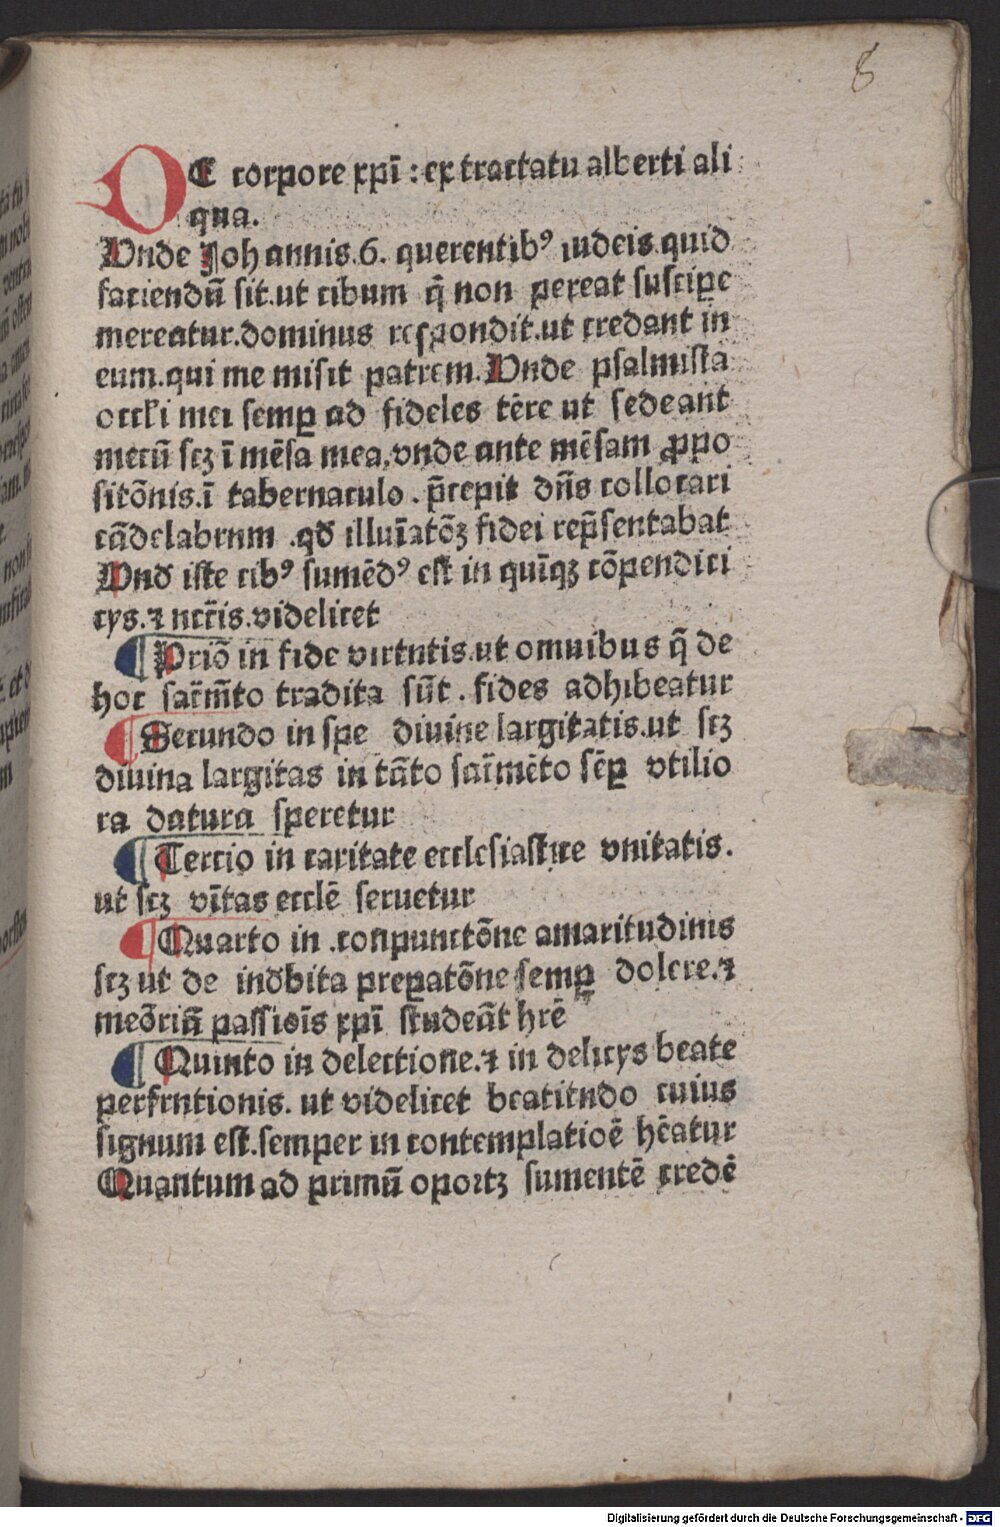 8
DE corpore xpī : ex tractatu alberti ali
qua.
Vnde Johannis.6. querentibꝰ iudeis.quid
faciendū sit.ut cibum q̄ non pereat suscipe
mereatur.dominus respondit.ut credant in
eum.qui me misit patrem.Vnde psalmista
occl'i mei semꝑ ad fideles tēre ut sedeant
mecū scꝫ ī mēsa mea.vnde ante mēsam ꝓpo
sitōnis.ī tabernaculo . p̄cepit dn̄s collocari
cādelabrnm .qđ illuīatōꝫ fidei rep̄sentabat
Vnđ iste cibꝰ sumēdꝰ est in quīqꝫ cōpendici
cys.⁊ nct̄is.videlicet
¶ Priō in fide virtntis.ut omnibus q̄ de
hoc sac̄m̄to tradita sūt . fides adhibeatur
¶ Secundo in spe diuine largitatis.ut scꝫ
diuina largitas in tāto sac̄mēto sēꝑ vtilio
ra datura speretur
¶ Tercio in caritate ecclesiastice vnitatis.
ut scꝫ vn̄itas ecclē seruetur
¶ Quarto in .conpunctōne amaritudinis
scꝫ ut de indbita preꝑatōne semꝑ dolere.⁊
meōriā passiōis xpī studeāt hrē
¶ Quinto in delectione.⁊ in delicys beate
perfrntionis. ut videlicet beatitndo cuius
signum est.semper in contemplatiōe hēatur
Quantum ad primū oportꝫ sumentē credē
Digitalisierung gefördert durch die Deutsche Forschungsgemeinschaft - DFG